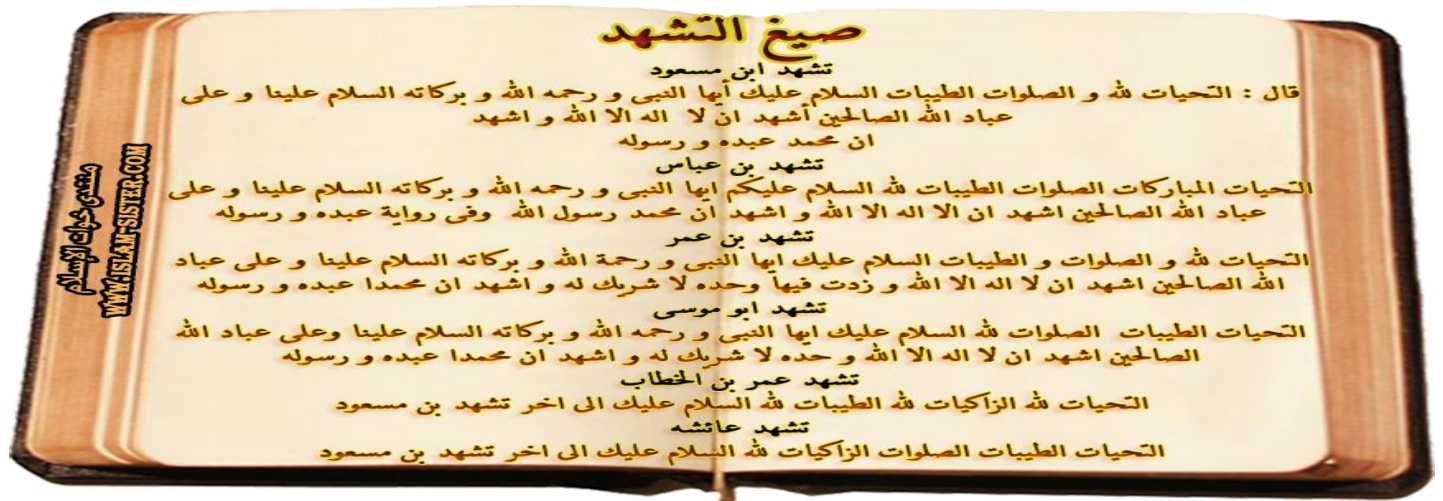 صيغ التشهد
تشهد ابن مسعود
قال : التحيات لله و الصلوات الطيبات السلام عليك أيها النبى و رحمه الله و بركاته السلام علينا و على
عباد الله الصالحين أشهد ان لا اله الا الله و اشهد
ان محمد عبده و رسوله
تشهد بن عباس
التحيات المباركات الصلوات الطيبات لله السلام عليكم ايها النبى و رحمه الله و بركاته السلام علينا و على
عباد الله الصالحين اشهد ان الا اله الا الله و اشهد ان محمد رسول الله وفى رواية عبده و رسوله
تشهد بن عمر
التحيات لله و الصلوات و الطيبات السلام عليك ايها النبى و رحمة الله و بركاته السلام علينا و على عباد
الله الصالحين اشهد ان لا اله الا الله و زدت فيها وحده لا شريك له و اشهد ان محمدا عبده و رسوله
تشهد ابو موسى
التحيات الطيبات الصلوات لله السلام عليك ايها النبى و رحمه الله و بركاته السلام علينا وعلى عباد الله
الصالحين اشهد ان لا اله الا الله و حده لا شريك له و اشهد ان محمدا عبده و رسوله
تشهد عمر بن الخطاب
التحيات لله الزاكيات لله الطيبات لله السلام عليك الى اخر تشهد بن مسعود
تشهد عائشه
التحيات الطيبات الصلوات الزاكيات لله السلام عليك الى اخر تشهد بن مسعود
منتدى اخوات الإسلام
WWW.ISLAM-SISTER.COM